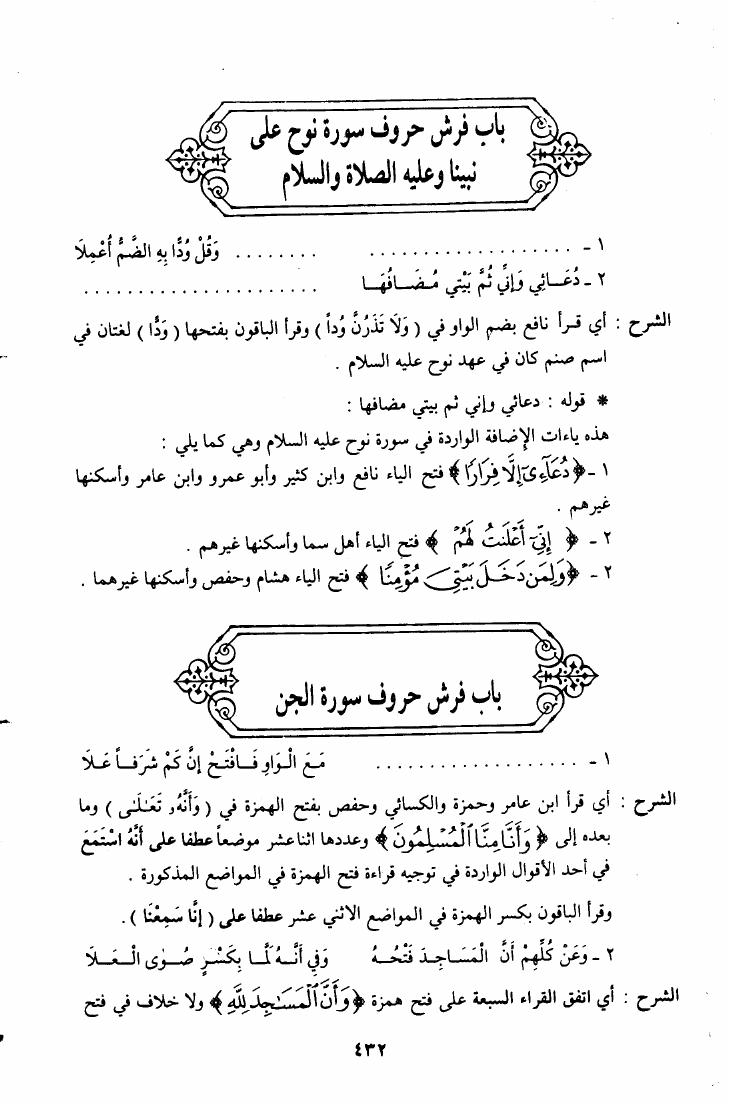 باب فرش حروف سورة نوح على
نبينا وعليه الصلاة والسلام
١ - .................... ........ وَقُلْ وُدًّا بِهِ الضَّمُّ أُعْمِلَا
٢ - دُعَـائِي وَإِنِّي ثُمَّ بَيْتِي مُـضَـافُهَـا ......................
الشرح : أي قـرأ نافع بضم الواو في ( وَلَا تَذَرُنَّ وُداً ) وقرأ الباقون بفتحها ( وَدًّا ) لغتان في
اسم صنم كان في عهد نوح عليه السلام .
* قوله : دعائي وإني ثم بيتي مضافها :
هذه ياءات الإضافة الواردة في سورة نوح عليه السلام وهي كما يلي :
١ - ﴿ دُعَآءِىٓ إِلَّا فِرَارًا ﴾ فتح الياء نافع وابن كثير وأبو عمرو وابن عامر وأسكنها
غيرهم .
٢ - ﴿ إِنِّىٓ أَعْلَنتُ لَهُمْ ﴾ فتح الياء أهل سما وأسكنها غيرهم .
٢ - ﴿ وَلِمَن دَخَلَ بَيْتِىَ مُؤْمِنًا ﴾ فتح الياء هشام وحفص وأسكنها غيرهما .
باب فرش حروف سورة الجن
١ - .................... مَـعَ الْـوَاوِ فَـافْتَـحْ إِنَّ كَمْ شَرَفـاً عَـلَا
الشرح : أي قرأ ابن عامر وحمزة والكسائي وحفص بفتح الهمزة في ( وَأَنَّهُۥ تَعَـٰلَىٰ ) وما
بعده إلى ﴿ وَأَنَّا مِنَّا ٱلْمُسْلِمُونَ ﴾ وعددها اثنا عشر موضعاً عطفا على أَنَّهُ اسْتَمَعَ
في أحد الأقوال الواردة في توجيه قراءة فتح الهمزة في المواضع المذكورة .
وقرأ الباقون بكسر الهمزة في المواضع الاثني عشر عطفا على ( إِنَّا سَمِعْنَا ) .
٢ - وَعَنْ كُلِّهِمْ أَنَّ الْمَسَـاجِـدَ فَتْحُـهُ وَفِي أَنَّـهُ لَمَّـا بِكَسْـرٍ صُـوَى الْـعُـلَا
الشرح : أي اتفق القراء السبعة على فتح همزة ﴿ وَأَنَّ ٱلْمَسَـٰجِدَ لِلَّهِ ﴾ ولا خلاف في فتح
٤٣٢